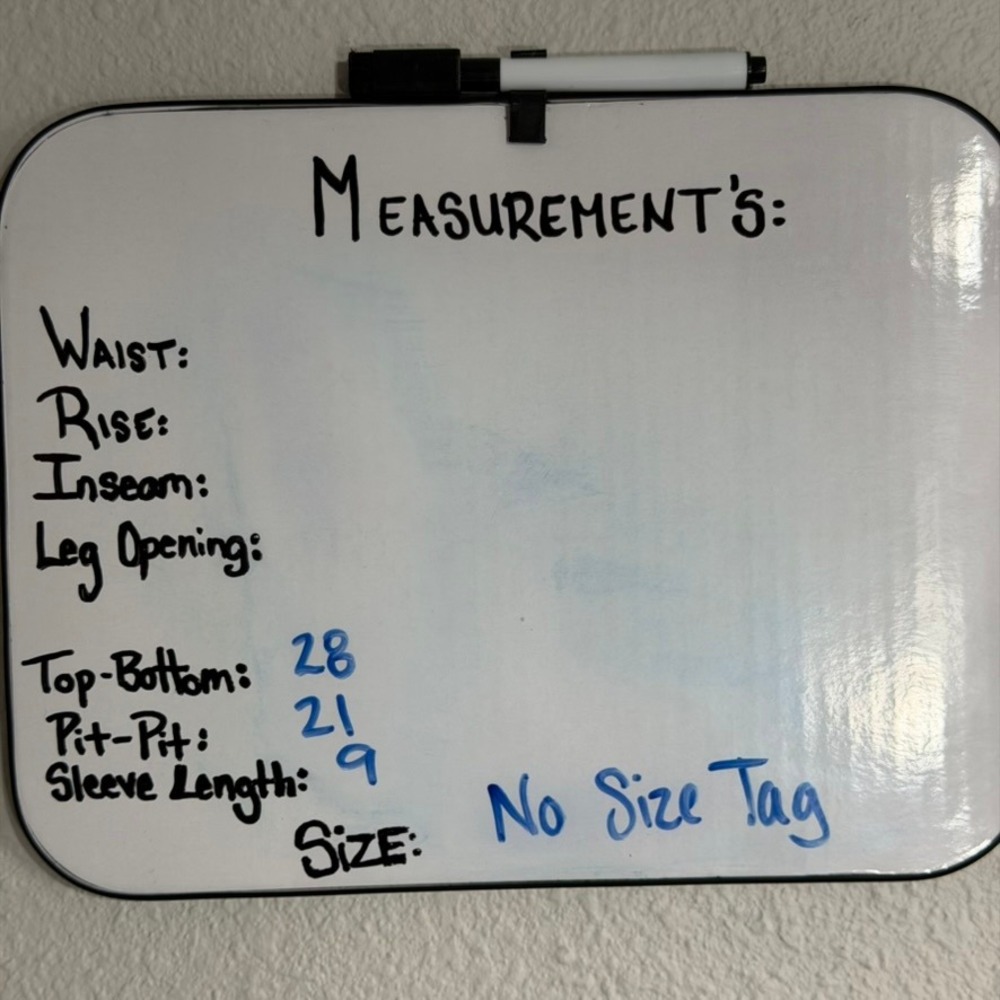 MEASUREMENT'S:
WAIST:
RISE:
Inseam:
Leg Opening:
Top-Bottom: 28
Pit-Pit: 21
Sleeve Length: 9
SiZE: No Size Tag